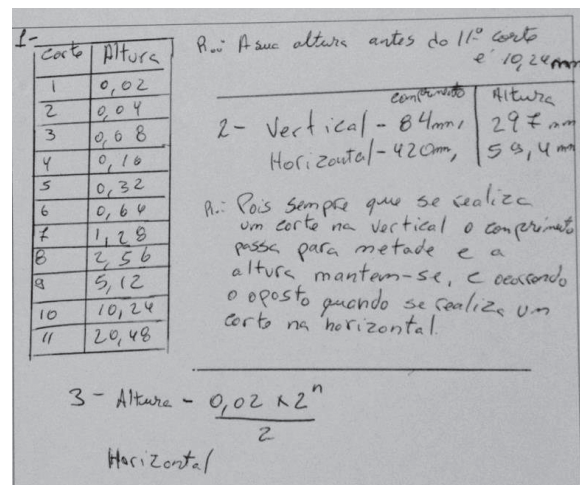 1-
Corte Altura
1 0,02
2 0,04
3 0,08
4 0,16
5 0,32
6 0,64
7 1,28
8 2,56
9 5,12
10 10,24
11 20,48
R.: A sua altura antes do 11º corte
é 10,24 mm
comprimento Altura
2- Vertical - 84mm, 297 mm
Horizontal - 420mm, 59,4 mm
R.: Pois sempre que se realiza
um corte na vertical o comprimento
passa para metade e a
altura mantem-se, e ocorrendo
o oposto quando se realiza um
corte na horizontal.
3 - Altura - 0,02 x 2ⁿ
2
Horizontal